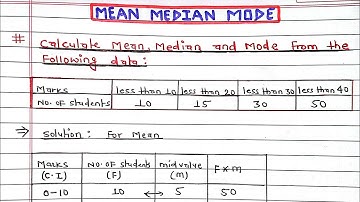 MEAN MEDIAN MODE
# Calculate Mean, Median and Mode from the
Following data:
Marks less than 10 less than 20 less than 30 less than 40
No. of students 10 15 30 50
⇒ Solution: For Mean
Marks (C.I) No. of students (F) midvalue (m) F×m
0-10 10 ↔ 5 50